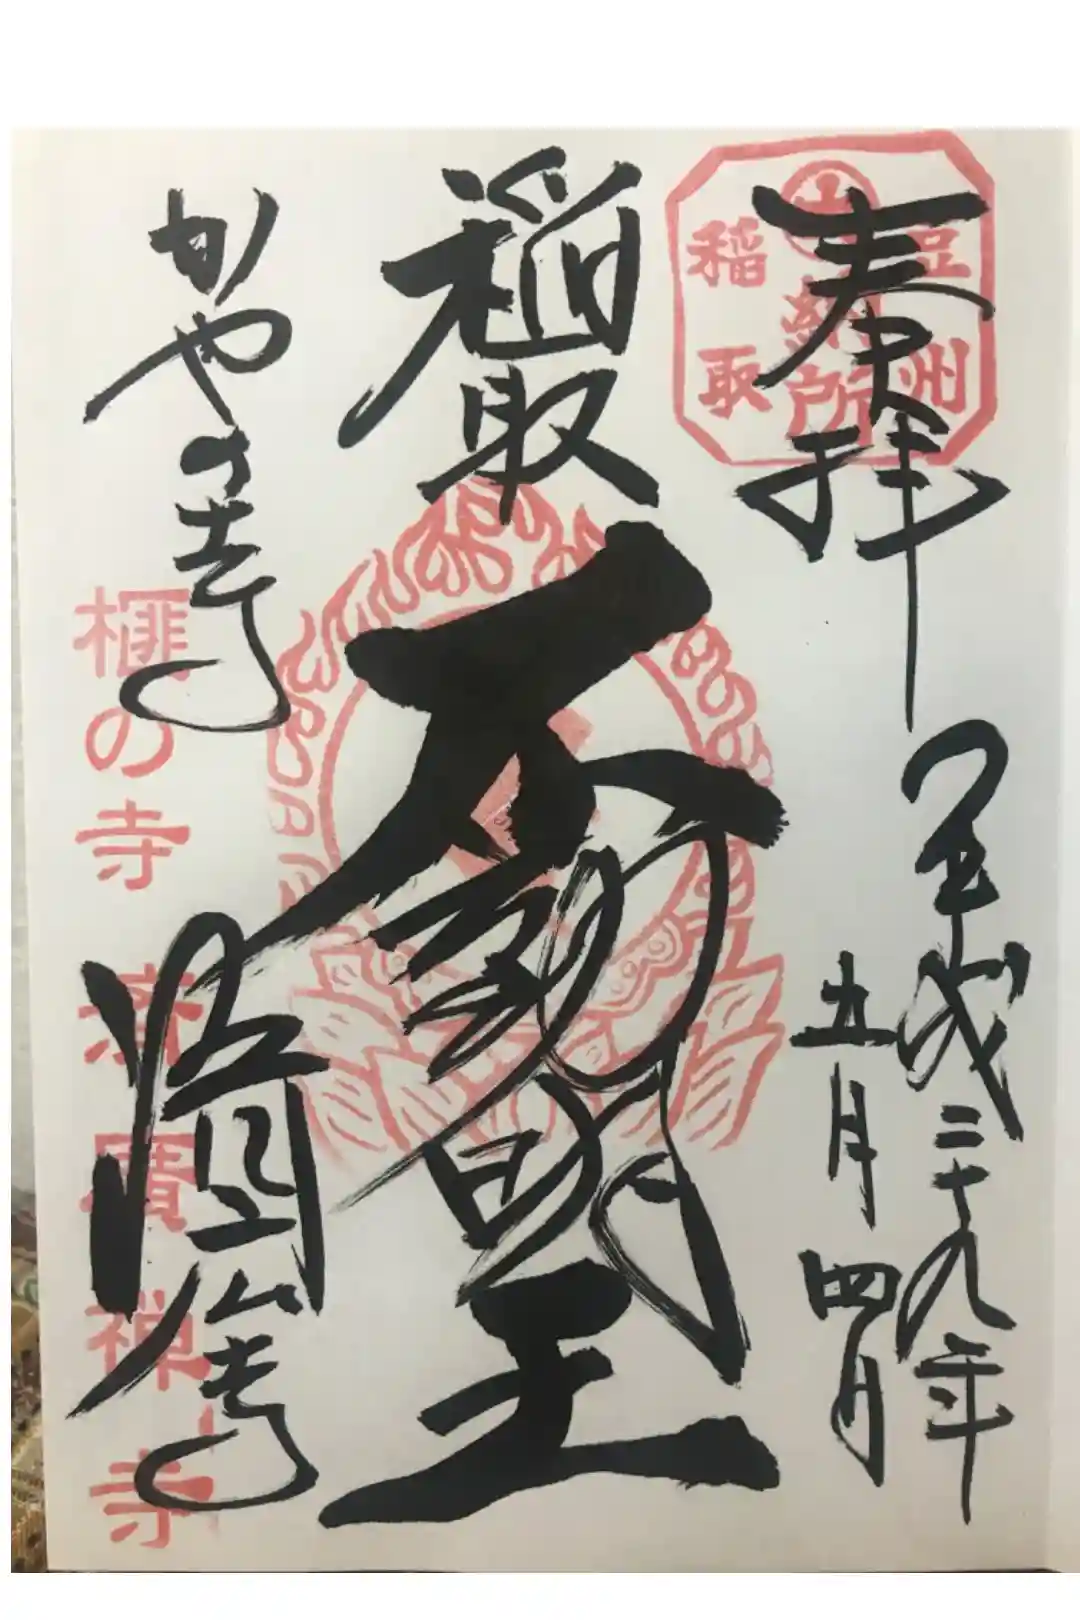 奉拝
平成二十九年
五月四日
稲取
不動明王
かやの寺
済廣寺
豆州
納所
稲取
榧の寺
済廣禅寺